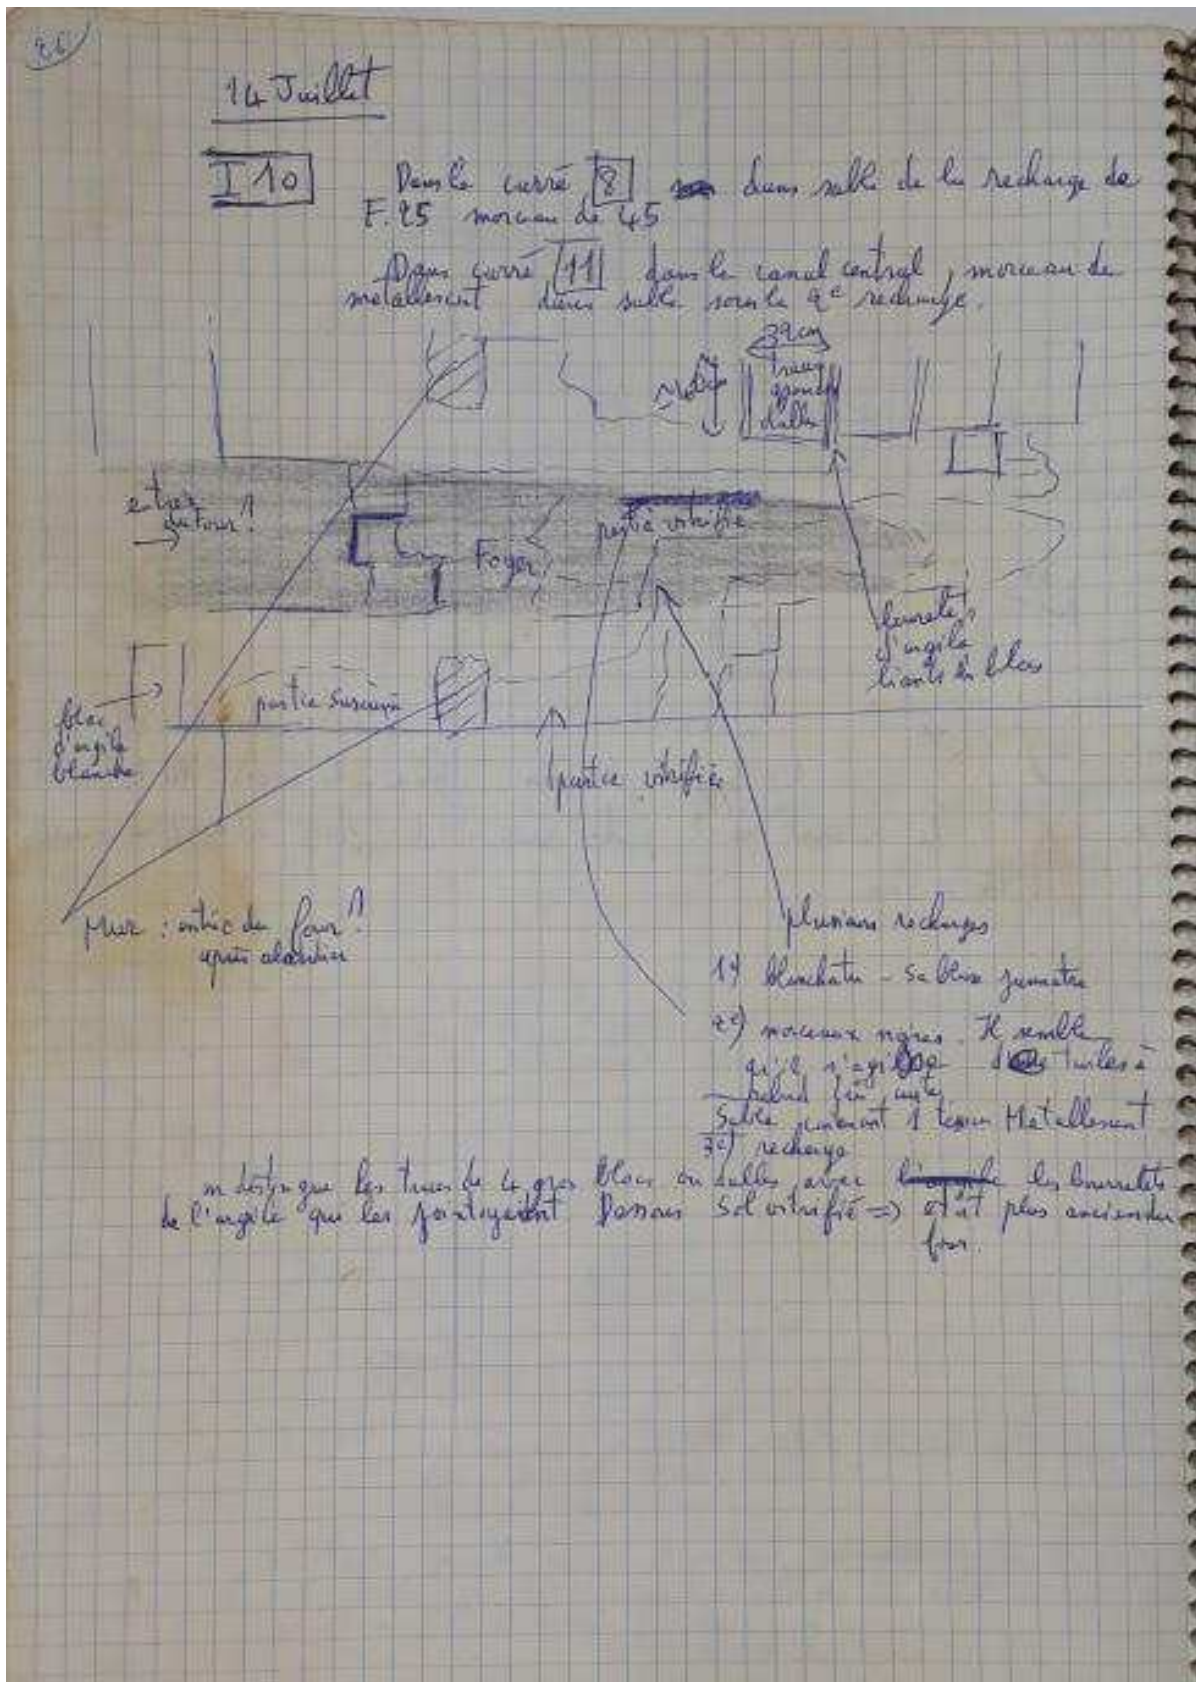 26
14 Juillet
I 10
Dans le carré 8 dans sable de la recharge de
F.25 morceau de 45
Dans carré 11 dans le canal central, morceau de
metallescent dans sable sous la 2e recharge.
32cm
trace
grande
dalles
entrée
du four?
Foyer?
partie vitrifié
bourrelets
d'argile
liants les blocs
bloc
d'argile
blanche
partie
partie vitrifiée
Mur : entrée du four?
après abandon
plusieurs recharges
1) blanchatre - sableuse jaunatre
2e) morceaux nigres. Il semble
qu'il s'agisse de tuiles à
rebord
Sable contenant 1 tesson Metallescent
3e) recharge
on distingue les traces de 4 gros blocs ou dalles avec les bourrelets
de l'argile que les jointoyaient Dessous sol vitrifié => état plus ancien du
four.